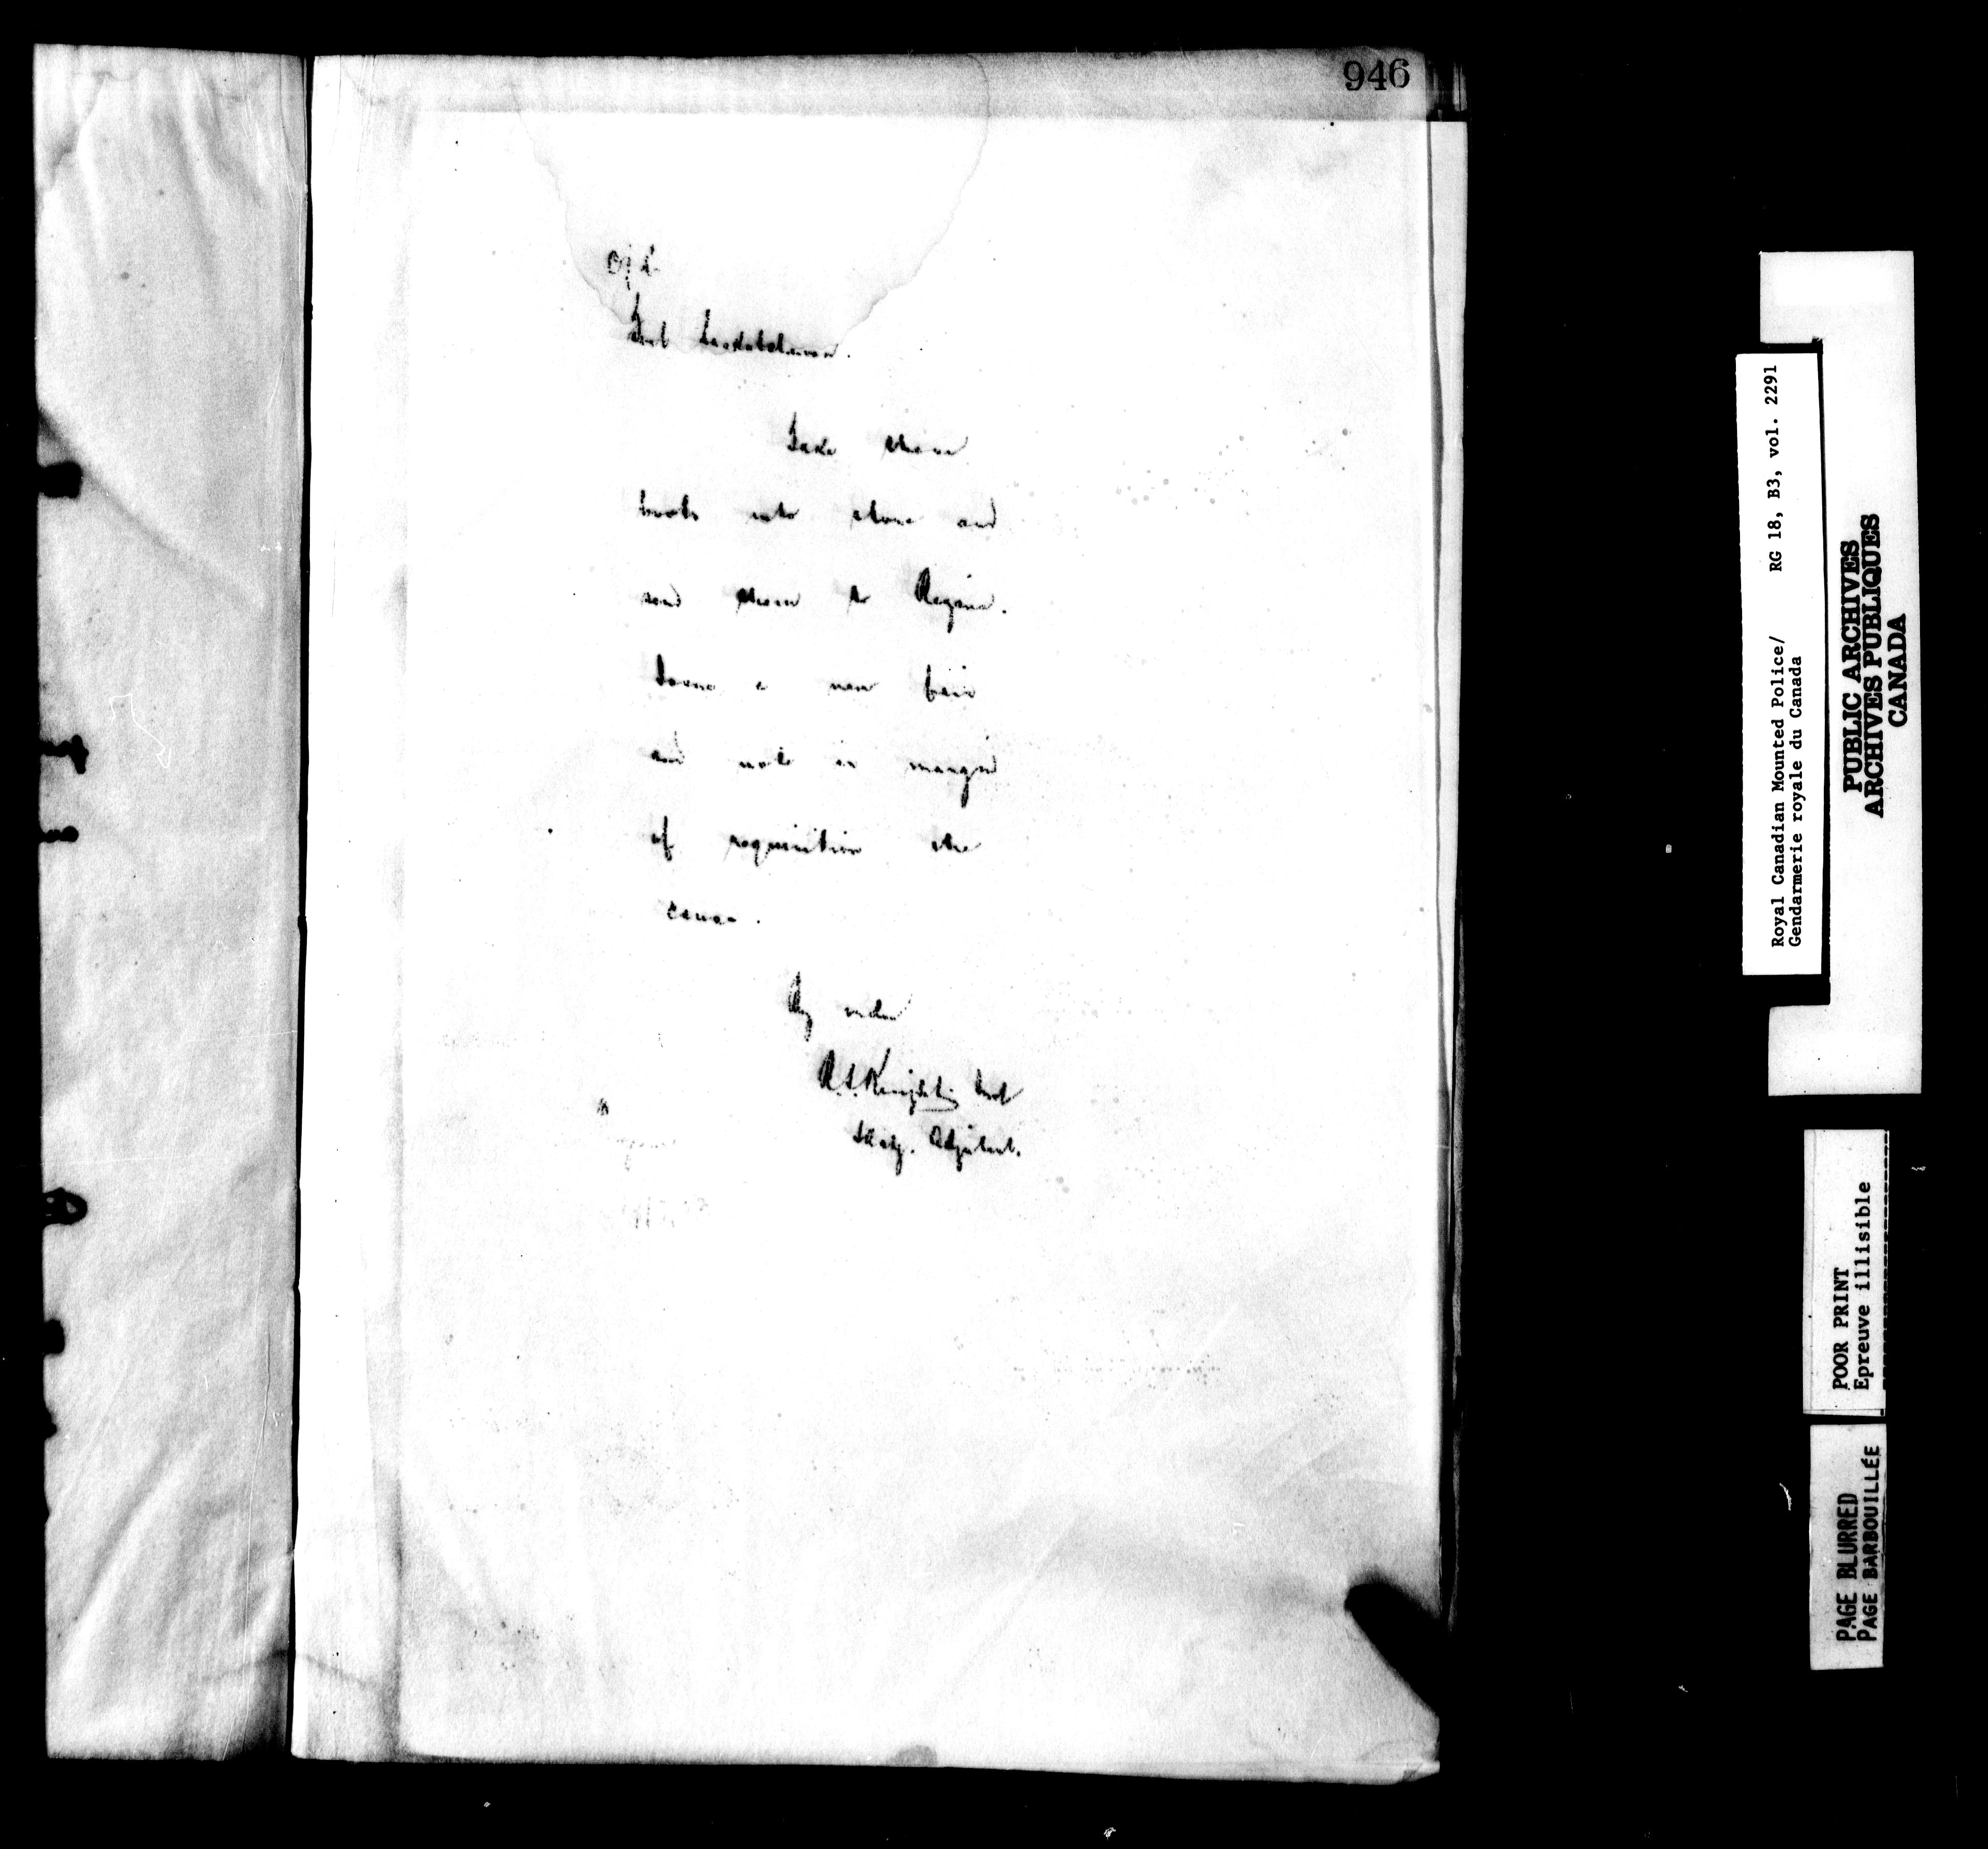 946
Fort Saskatchewan.
Take these
boots into store and
send them to Regina.
Issue a new pair
and note in margin
of requisition the
cause.
By order
R.S. Knight, Insp
Adjutant.
Royal Canadian Mounted Police/ RG 18, B3, vol. 2291
Gendarmerie royale du Canada
PUBLIC ARCHIVES
ARCHIVES PUBLIQUES
CANADA
POOR PRINT
Epreuve illisible
PAGE BLURRED
PAGE BARBOUILLÉE